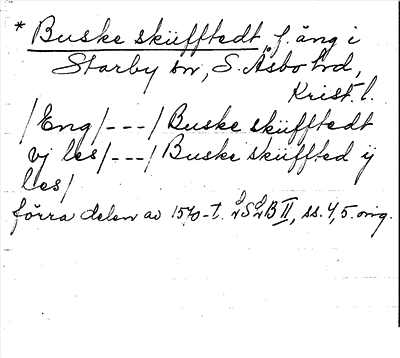 * Buske sküfftedt, f. äng i
Starby sn, S. Åsbo hd,
Krist. l.
/Eng/---/Buske sküfftedt
vj les/---/Buske sküffted ÿ
les/
förra delen av 1570-t. B II, ss. 4, 5. orig.